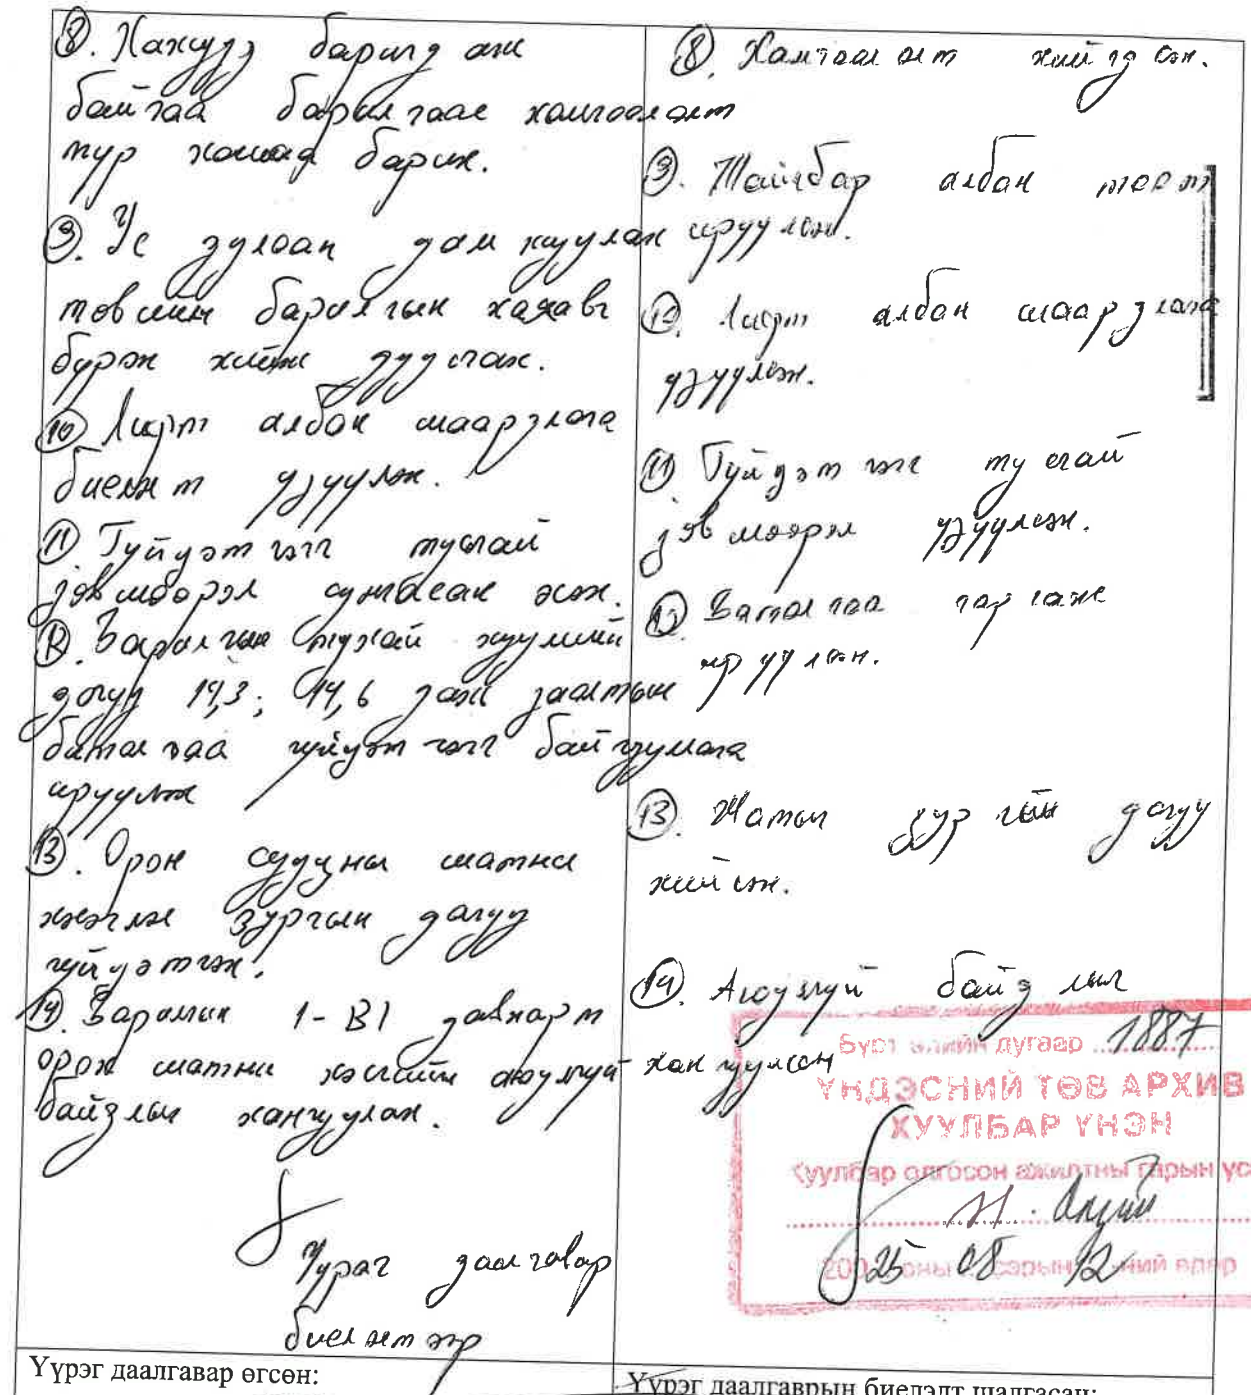 ⑧. Хажууд баригдаж
байгаа барилгаас хамгаалалт
түр хашаа барих.
⑨. Ус зулаан дамжуулах
төвийн барилгын ажлыг
бүрэн хийж дуусгах.
⑩ Лифт албан шаардлага
биелэлт үзүүлэх.
⑪ Гүйцэтгэгч тусгай
зөвшөөрөл сунгасан эсэх.
⑫. Барилгын тухай хуулийн
дагуу 14,3; 14,6 заах заалтын
баталгаа гүйцэтгэгч байгууллага
ирүүлэх
⑬. Орон сууцны шатны
хэсгийг зургын дагуу
гүйцэтгэх.
⑭. Барилгын 1-B1 давхарт
орох шатны хэсгийн аюулгүй
байдлыг хангуулах.
Үүрэг даалгавар
биелэлтээр
Үүрэг даалгавар өгсөн:
⑧. Хамгаалалт хийгдсэн.
⑨. Тайлбар албан тоот
ирүүлсэн.
⑩. Лифт албан шаардлага
үзүүлсэн.
⑪ Гүйцэтгэгч тусгай
зөвшөөрөл үзүүлсэн.
⑫ Баталгаа гаргаж
ирүүлсэн.
⑬. Шатыг зургийн дагуу
хийсэн.
⑭. Аюулгүй байдлыг
хангуулсан
Бүртгэлийн дугаар 1887
ҮНДЭСНИЙ ТӨВ АРХИВ
ХУУЛБАР ҮНЭН
Хуулбар олгосон ажилтны гарын үс
2025 оны 08 сарын 12 -ний өдөр
Үүрэг даалгаврын биелэлт шалгасан: